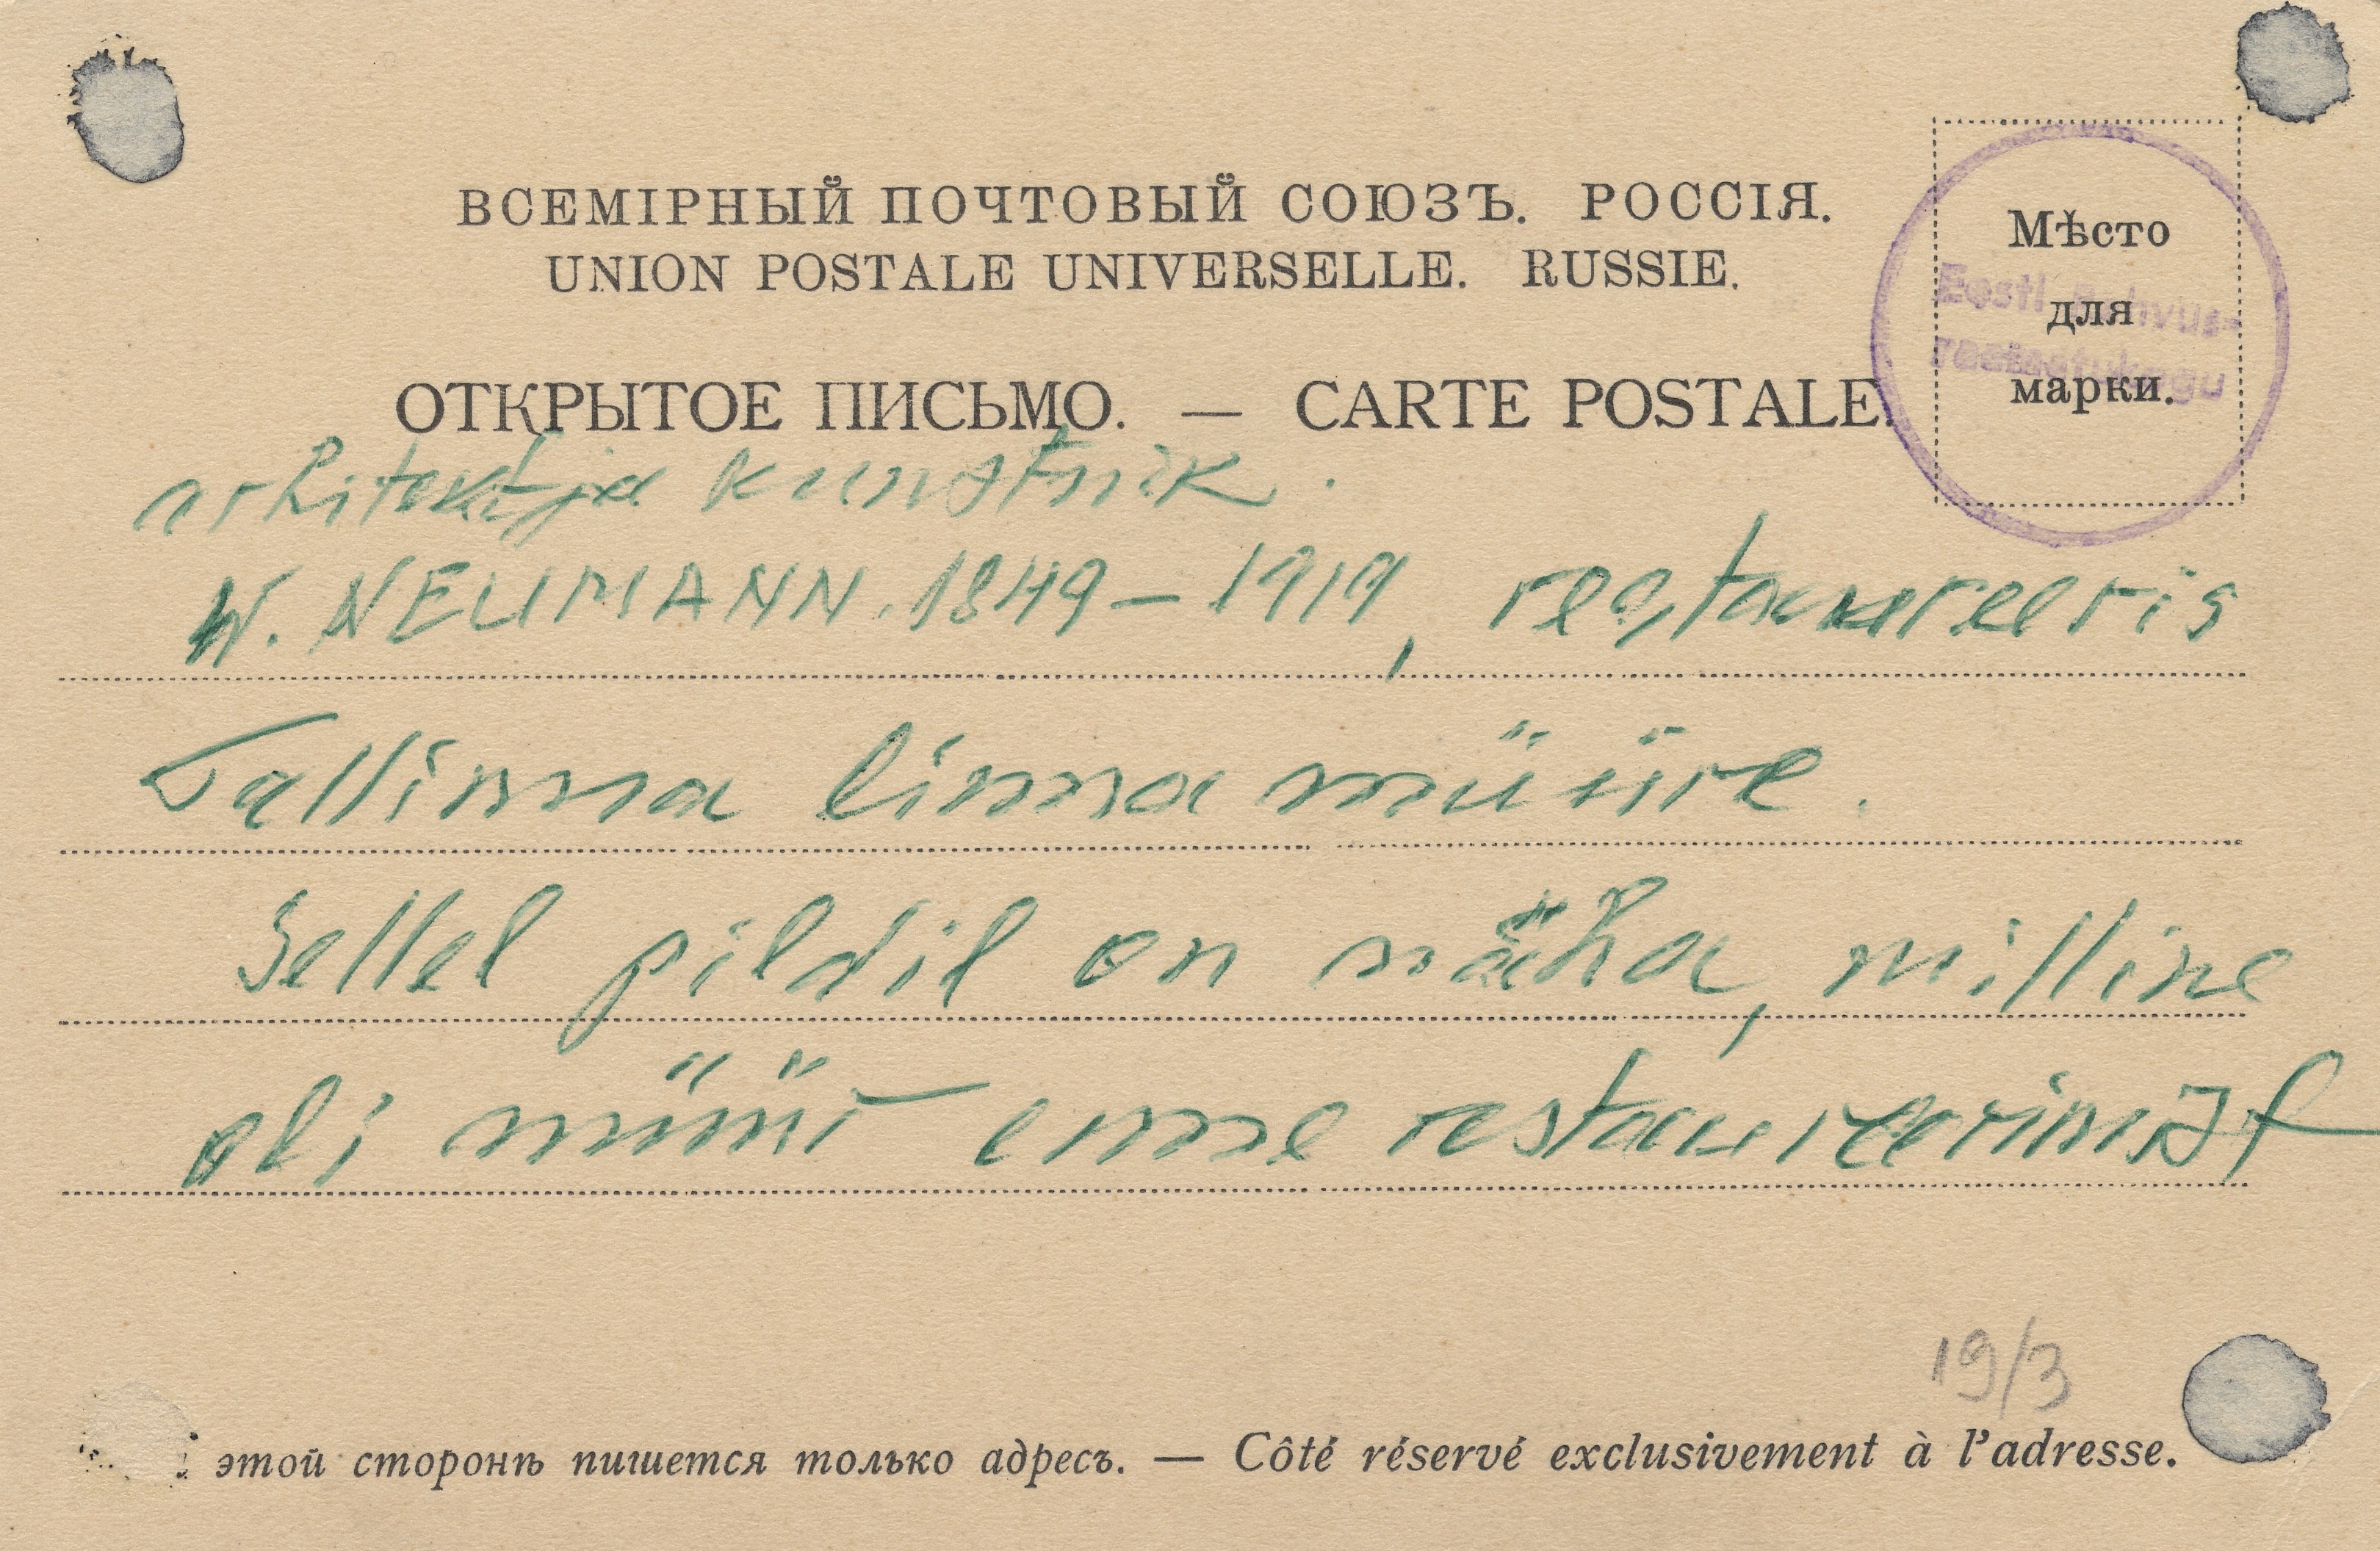 ВСЕМІРНЫЙ ПОЧТОВЫЙ СОЮЗЪ. РОССІЯ.
UNION POSTALE UNIVERSELLE. RUSSIE.
Мѣсто
для
марки.
Eesti Rahvus-
raamatukogu
ОТКРЫТОЕ ПИСЬМО. — CARTE POSTALE.
arhitekt ja kunstnik.
W. NEUMANN. 1849–1919, restaureeris
Tallinna linnamüüre.
Sellel pildil on näha, milline
oli müür enne restaureerimist
19/3
этой сторонѣ пишется только адресъ. — Côté réservé exclusivement à l'adresse.